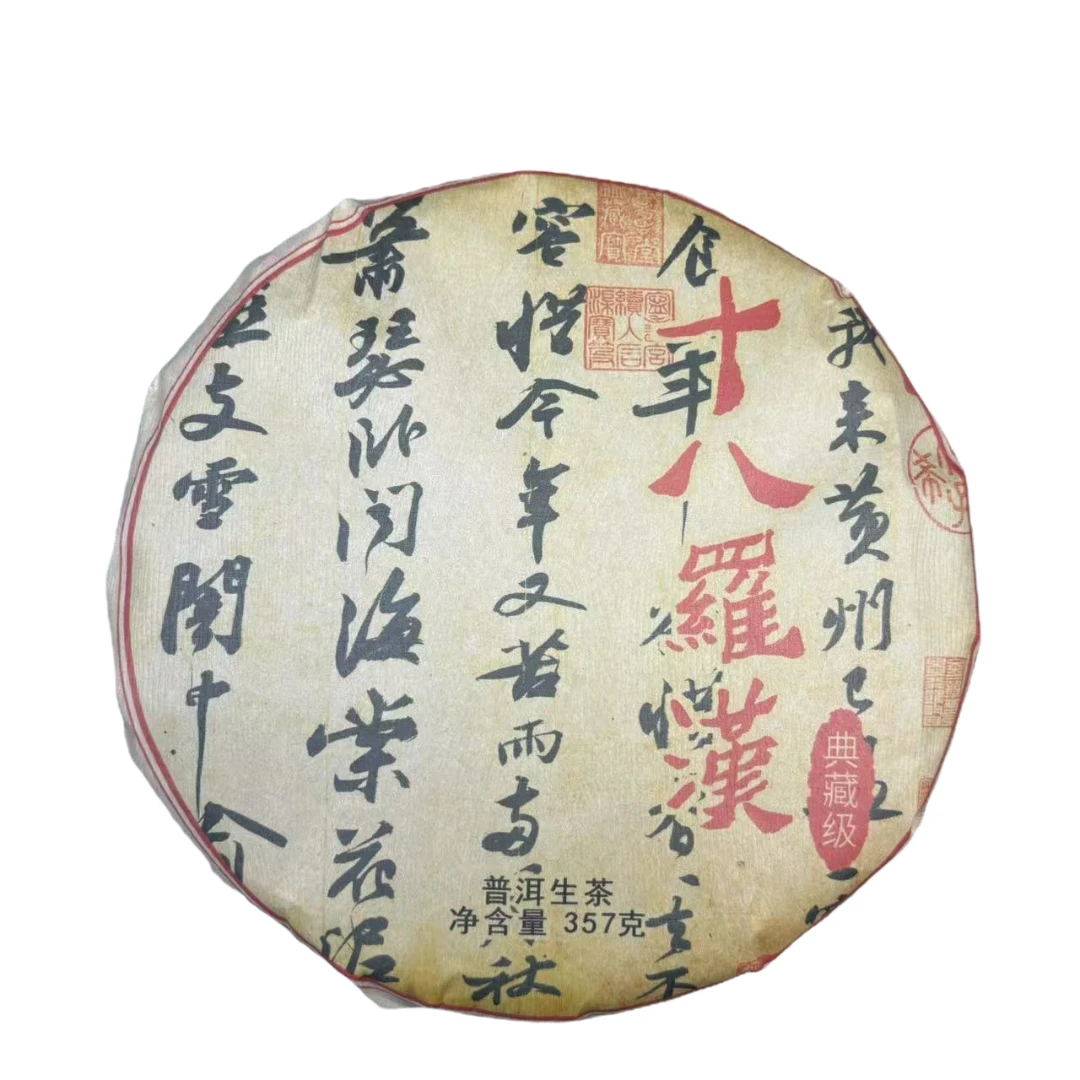 十八羅漢
典藏级
我来黄州已
食年惜春去不
容惜今年又苦雨两秋
蕭瑟卧闻海棠花泥
支雪闇中
普洱生茶
净含量 357克